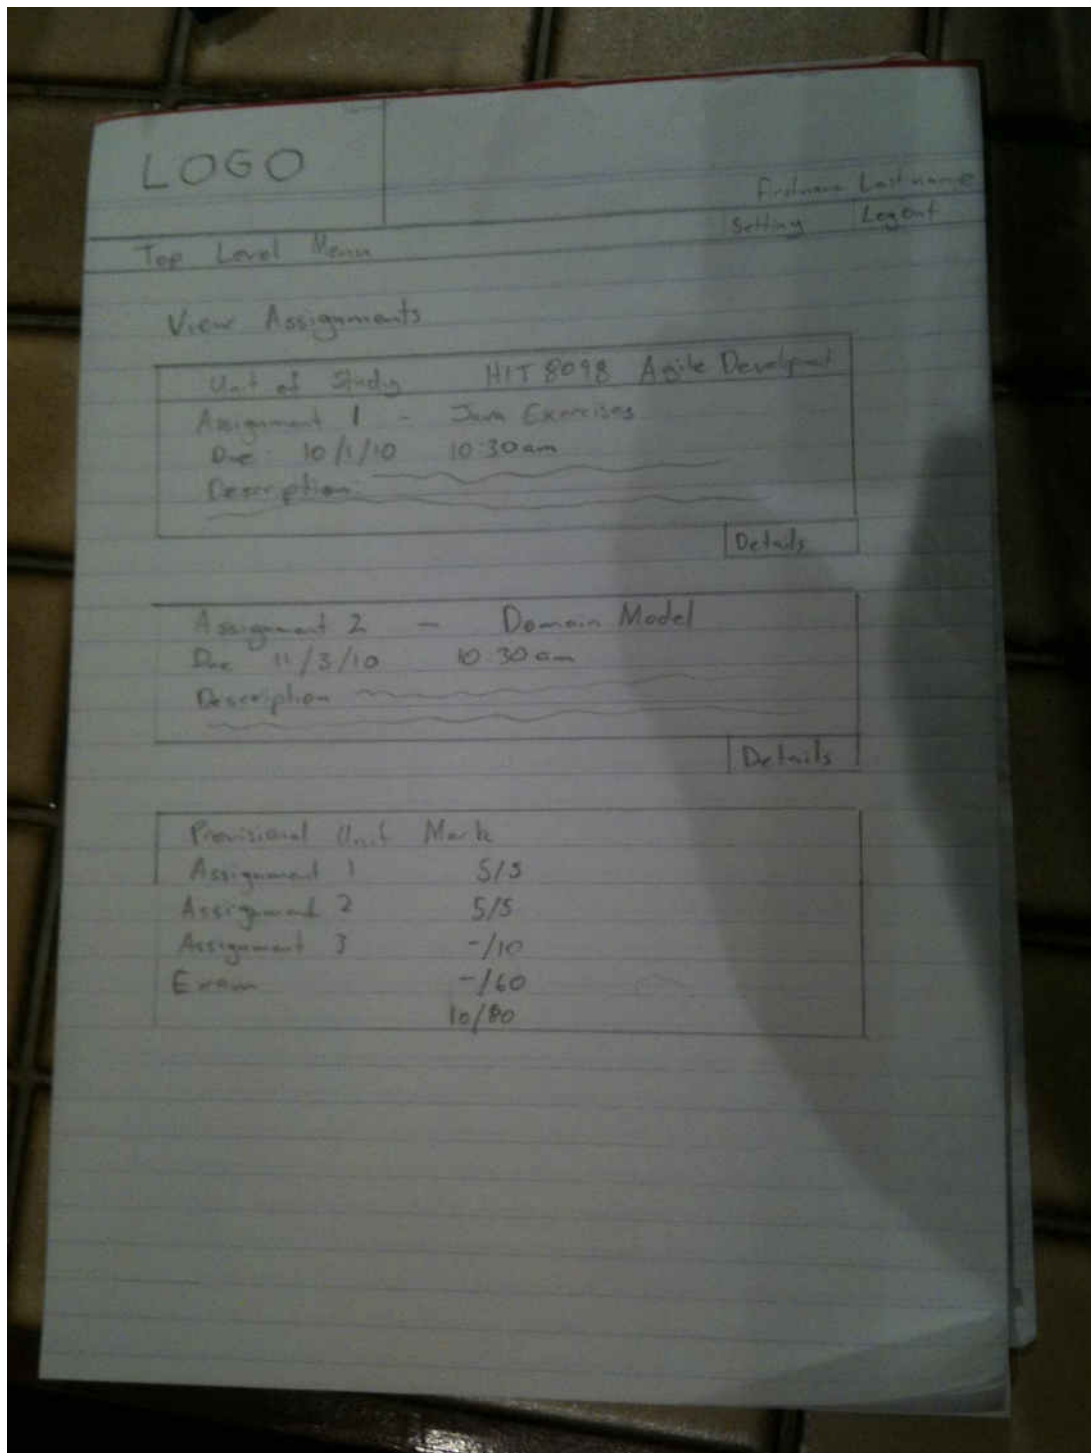 LOGO
Firstname Lastname
Setting Logout
Top Level Menu
View Assignments
Unit of Study HIT 8098 Agile Develpmet
Assignment 1 - Java Exercises
Due: 10/1/10 10:30am
Description
Details
Assignment 2 - Domain Model
Due 11/3/10 10:30am
Description
Details
Provisional Unit Mark
Assignment 1 5/5
Assignment 2 5/5
Assignment 3 -/10
Exam -/60
10/80